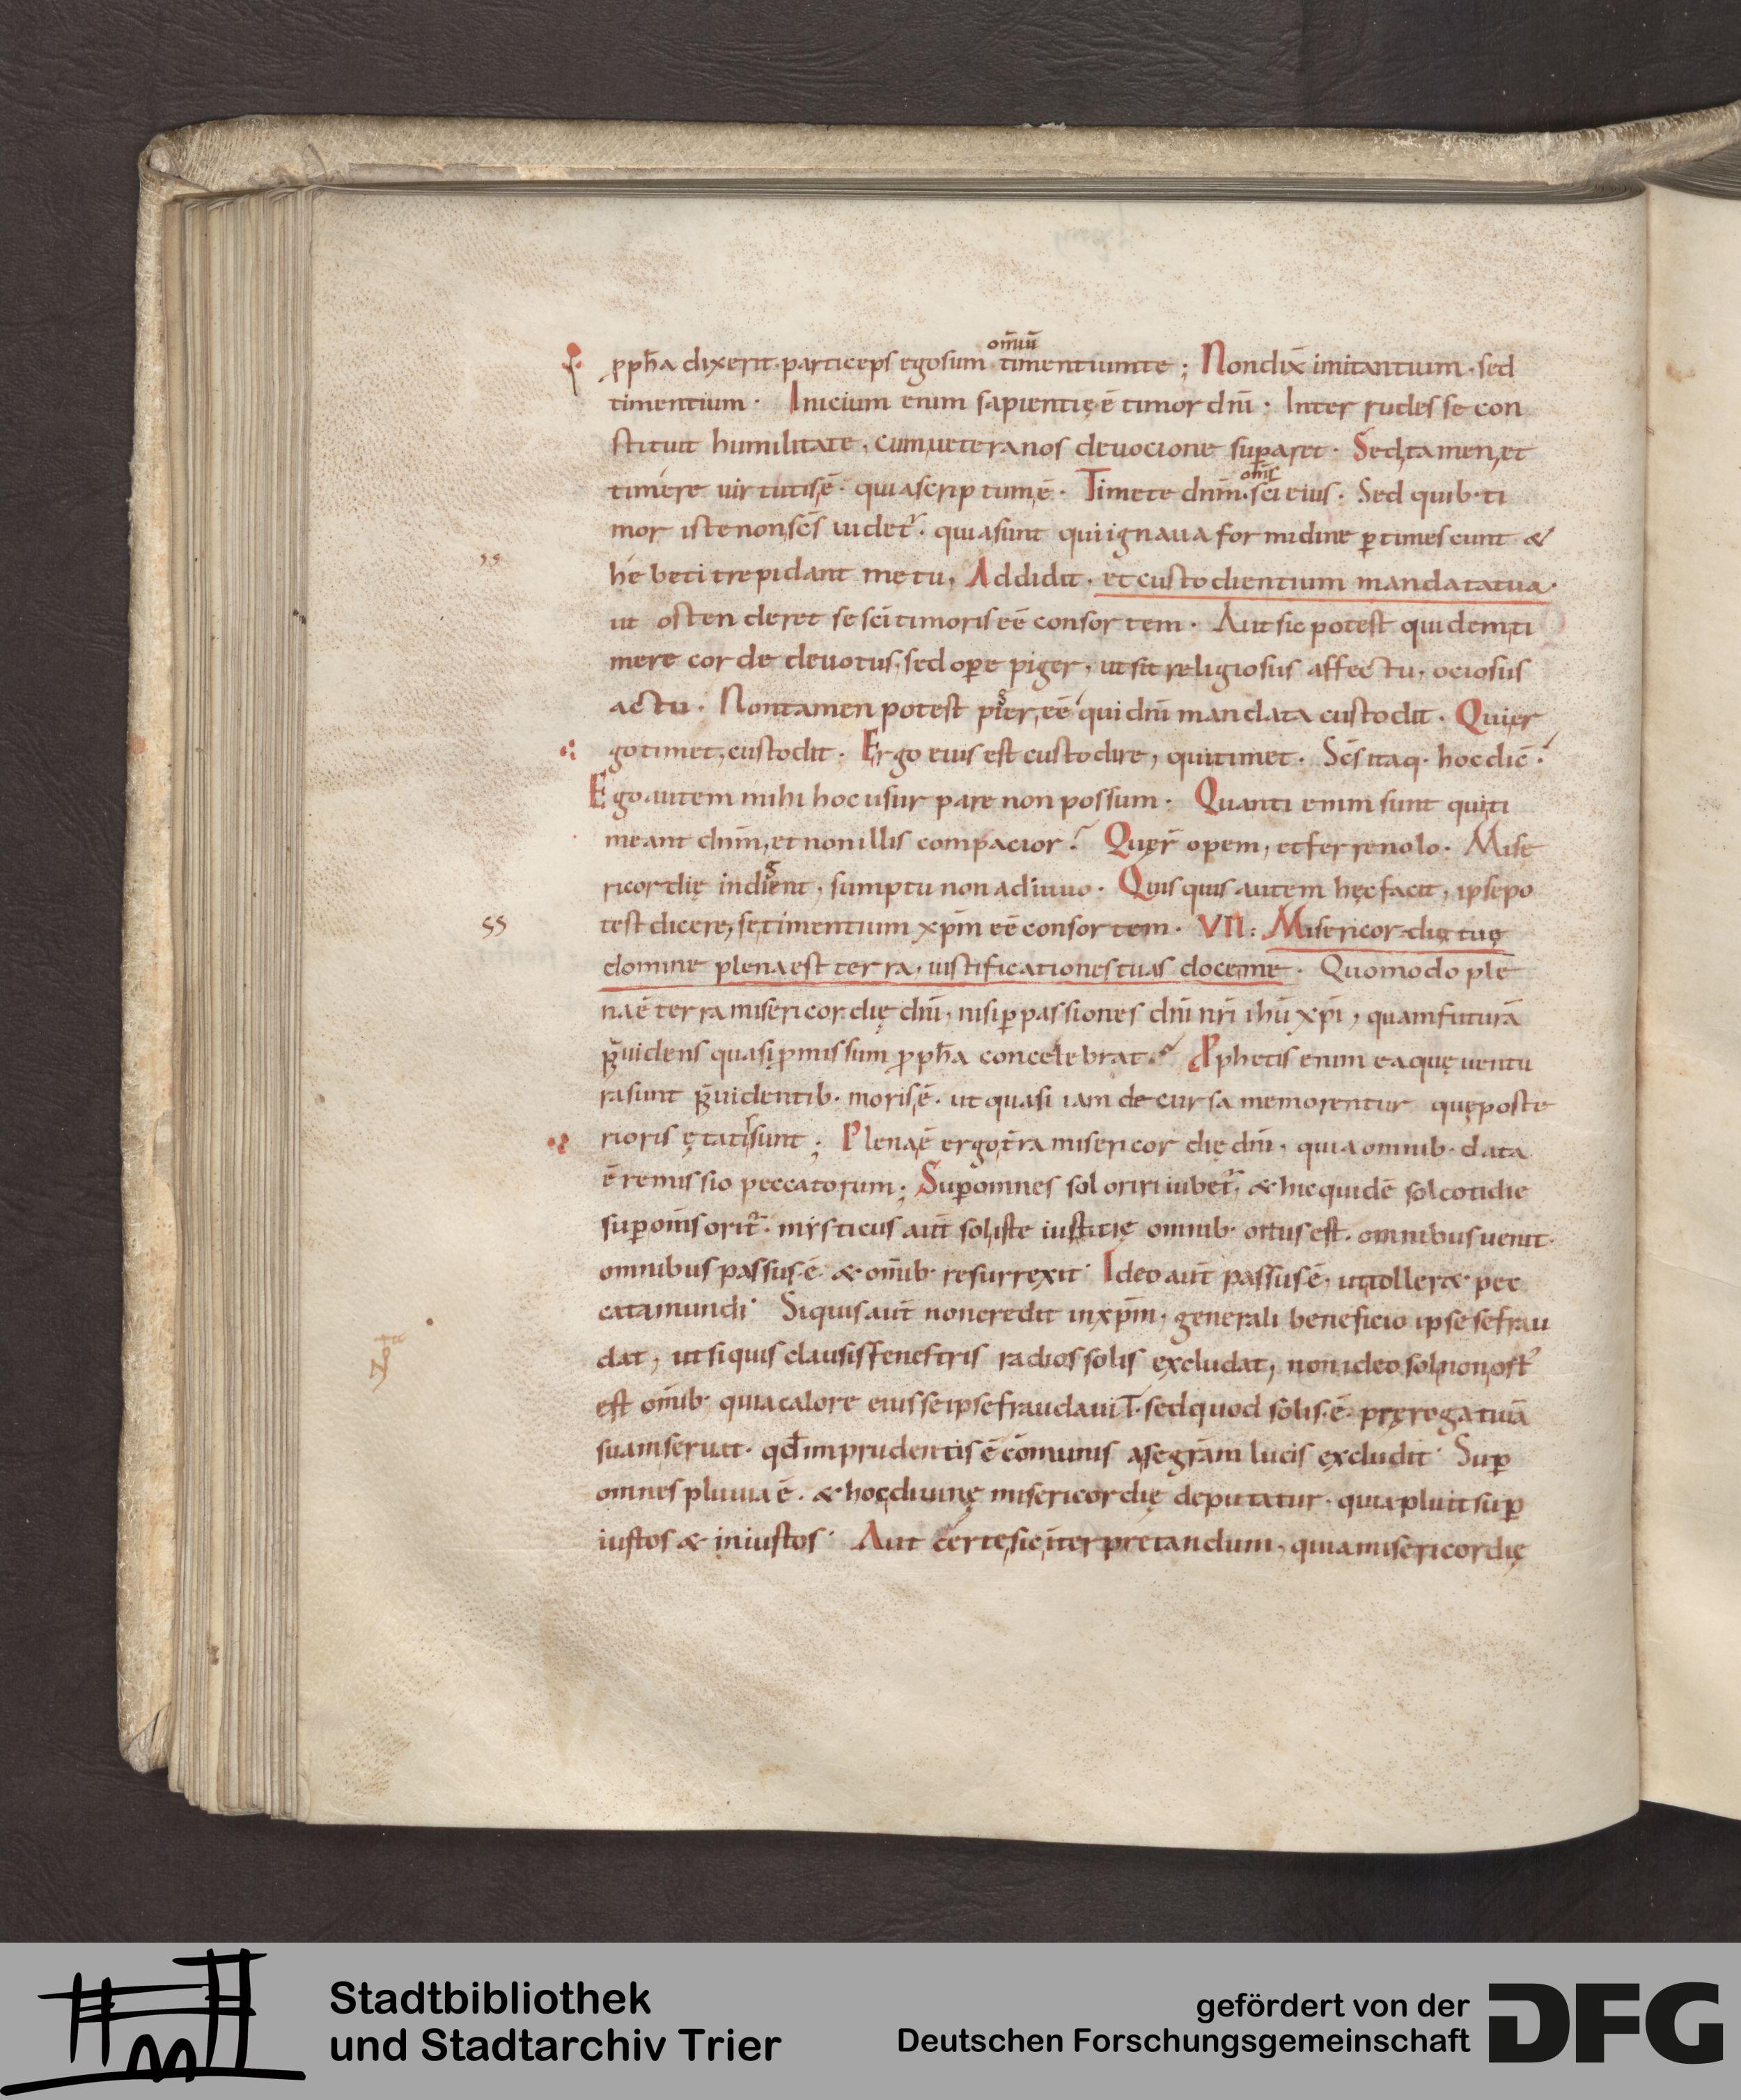 omiū
ꝓph̄a dixerit. particeps ego sum timentium te; Non dix̄ imitantium. sed
timentium. Inicium enim sapientię ē timor dnī. Inter rudes se con
stituit humilitate, cum ueteranos deuocione supararet. Sed tamen et
omīs
timere uirtutis ē. quia scriptum ē. Timete dnm̄ sc̄i eius. Sed quib. ti
mor iste non sc̄s uidet̄. quia sunt qui ignaua formidine ꝑtimescunt &
ss
hebeti trepidant metu, Addidit. et custodientium mandata tua.
ut ostenderet se sc̄i timoris eē consortem. Aut sic potest quidem ti
mere corde deuotus, sed oꝑe piger, ut sit religiosus affectu, ociosus
actu. Non tamen potest piger eē qui dnī mandata custodit. Qui er
go timet, custodit. Ergo eius est custodire, qui timet. Sc̄s itaq. hoc dic̄.
Ego autem mihi hoc usurpare non possum. Quanti enim sunt qui ti
meant dnm̄, et non illis compacior? Quęr̄ opem, et ferre nolo. Mise
ricordię indigent, sumptu non adiuuo. Quisquis autem hęc facit, ipse po
ss
test dicere, se timentium xp̄m eē consortem. VII: Misericordię tuę
domine plena est terra, iustificationes tuas doce me. Quomodo ple
na ē terra misericordię dnī, nisi ꝑ passiones dnī nr̄i ihū xp̄i, quam futurā
p̄uidens quasi ꝓmissum ꝓph̄a concelebrat. Pphetis enim ea quę uentu
ra sunt p̄uidentib. moris ē. ut quasi iam decursa memorentur quę poste
rioris ętatis sunt; Plena ē ergo tr̄a misericordię dnī, quia omnib. data
ē remissio peccatorum; Suꝑ omnes sol oriri iubet̄, & hic quidē sol cotidie
suꝑ om̄s orit̄. mysticus aut̄ sol iste iustitię omnib. ortus est. omnibus uenit.
omnibus passus ē. & om̄ib. resurrexit. Ideo aut̄ passus ē, ut tolleret pec
cata mundi. Si quis aut̄ non credit in xp̄m, generali beneficio ipse se frau
dat, ut si quis clausis fenestris radios solis excludat, non ideo sol non ort̄
est om̄ib. quia calore eius se ipse fraudauit. sed quod solis ē. pręrogatiuā
suam seruat. qd̄ imprudentis ē cōmunis a se grām lucis excludit. Suꝑ
omnes pluuia ē. & hoc diuinę misericordię deputatur. quia pluit suꝑ
iustos & iniustos. Aut certe sic interpretandum, quia misericordię
Stadtbibliothek
und Stadtarchiv Trier
gefördert von der
Deutschen Forschungsgemeinschaft
DFG